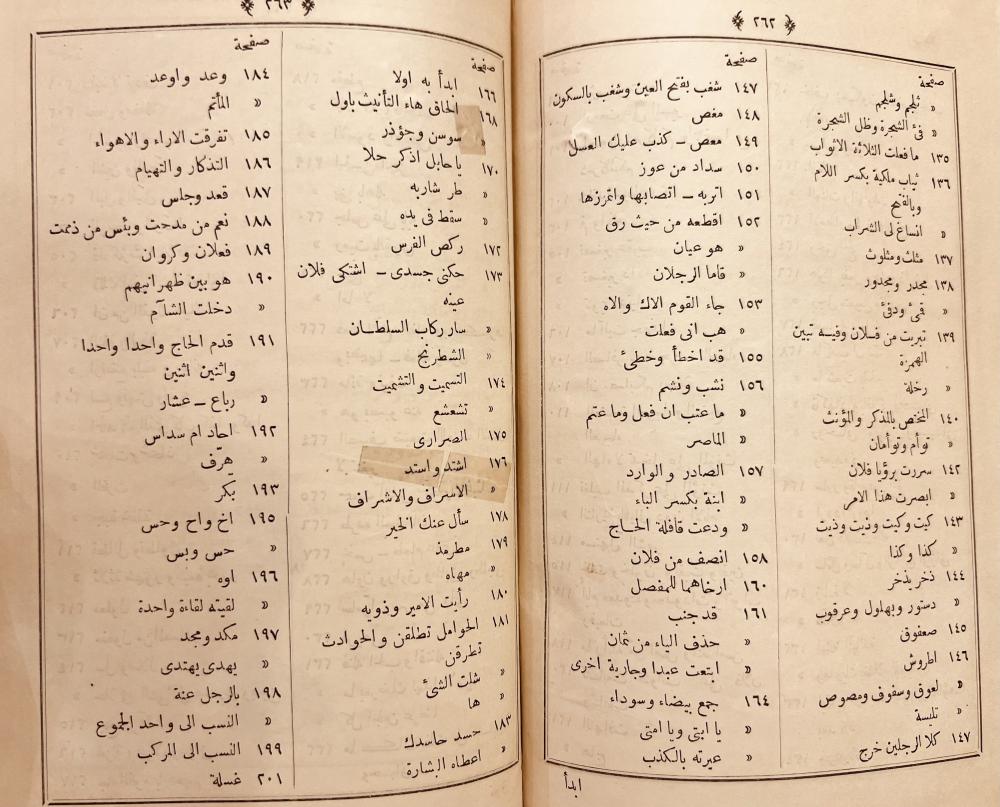 ﴿ ٢٦٢ ﴾
صفحة
« ثلجم وشلجم
« فئ الشجرة وظل الشجرة
١٣٥ ما فعلت الثلاثة الاثواب
١٣٦ ثياب ملكية بكسر اللام
وبالفتح
« انساغ لى الشراب
١٣٧ مثلث ومثلوث
١٣٨ مجدر ومجدور
« قئ ودفئ
١٣٩ تبريت من فلان وفيه تبين
الهمزة
« رخلة
١٤٠ المختص بالمذكر والمؤنث
« توأم وتوأمان
١٤٢ سررت برؤيا فلان
« ابصرت هذا الامر
١٤٣ كيت وكيت وذيت وذيت
« كذا وكذا
١٤٤ ذخر يذخر
« دستور وبهلول وعرقوب
١٤٥ صعفوق
١٤٦ اطروش
« لعوق وسفوف ومصوص
« تليسة
١٤٧ كلا الرجلين خرج
صفحة
١٤٧ شغب بفتح العين وشغب بالسكون
١٤٨ مغص
١٤٩ معص ـ كذب عليك العسل
١٥٠ سداد من عوز
١٥١ اتربه ـ اتصابها واتمززها
١٥٢ اقطعه من حيث رق
« هو عيان
« قاما الرجلان
١٥٣ جاء القوم الاك والاه
« هب انى فعلت
١٥٥ قد اخطأ وخطئ
١٥٦ نشب ونشم
« ما عتب ان فعل وما عتم
« الماصر
١٥٧ الصادر والوارد
« ابنة بكسر الباء
« ودعت قافلة الحاج
١٥٨ انصف من فلان
١٦٠ ارخاهما للمفصل
١٦١ قد جنب
« حذف الياء من ثمان
« ابتعت عبدا وجارية اخرى
١٦٤ جمع بيضاء وسوداء
« يا ابتى ويا امتى
« عيرته بالكذب
ابدأ
﴿ ٢٦٣ ﴾
صفحة
١٦٦ ابدأ به اولا
١٦٨ الحاق هاء التأنيث باول
« سوسن وجؤذر
١٧٠ يا حابل اذكر حلا
« طر شاربه
« سقط فى يده
١٧٢ ركض الفرس
١٧٣ حكنى جسدى ـ اشتكى فلان
عينه
« سار ركاب السلطان
« الشطرنج
١٧٤ التسميت والتشميت
« تشعشع
١٧٥ الصرارى
١٧٦ اشتد واستد
« الاسراف والاشراف
١٧٨ سأل عنك الخير
١٧٩ مطرمذ
« مهاه
١٨٠ رأيت الامير وذويه
١٨١ الحوامل تطلقن والحوادث
تطرقن
« شات الشئ
« ها
١٨٣ حسد حاسدك
« اعطاه البشارة
صفحة
١٨٤ وعد واوعد
« المأتم
١٨٥ تفرقت الاراء والاهواء
١٨٦ التذكار والتهيام
١٨٧ قعد وجلس
١٨٨ نعم من مدحت وبئس من ذممت
١٨٩ فعلان وكروان
١٩٠ هو بين ظهرانيهم
« دخلت الشآم
١٩١ قدم الحاج واحدا واحدا
واثنين اثنين
« رباع ـ عشار
١٩٢ احاد ام سداس
« هرّف
١٩٣ بكر
١٩٥ اخ واح وحس
« حس وبس
١٩٦ اوه
« لقيته لقاءة واحدة
١٩٧ مكد ومجد
« يهدى يهتدى
١٩٨ بالرجل عنة
« النسب الى واحد الجموع
١٩٩ النسب الى المركب
٢٠١ غسلة